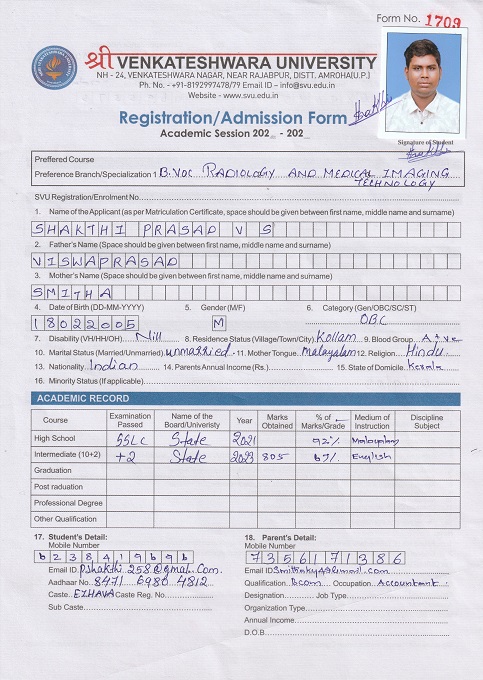 Form No. 1709
श्री VENKATESHWARA UNIVERSITY
NH - 24, VENKATESHWARA NAGAR, NEAR RAJABPUR, DISTT. AMROHA(U.P.)
Ph. No. - +91-8192997478/79 Email ID – info@svu.edu.in
Website - www.svu.edu.in
Registration/Admission Form
Academic Session 202 - 202
Signature of Student
Preffered Course
Preference Branch/Specialization 1 B.VOC RADIOLOGY AND MEDICAL IMAGING
TECHNOLOGY
SVU Registration/Enrolment No.
1. Name of the Applicant (as per Matriculation Certificate, space should be given between first name, middle name and surname)
SHAKTHI PRASAD V S
2. Father's Name (Space should be given between first name, middle name and surname)
VISWAPRASAD
3. Mother's Name (Space should be given between first name, middle name and surname)
SMITHA
4. Date of Birth (DD-MM-YYYY) 5. Gender (M/F) 6. Category (Gen/OBC/SC/ST)
18022005 M OBC
7. Disability (VH/HH/OH) Nill 8. Residence Status (Village/Town/City) Kollam 9. Blood Group A+ve
10. Marital Status (Married/Unmarried) unmarried 11. Mother Tongue malayalam 12. Religion Hindu
13. Nationality Indian 14. Parents Annual Income (Rs.) 15. State of Domicile Kerala
16. Minority Status (If applicable)
ACADEMIC RECORD
Course Examination Passed Name of the Board/Univeristy Year Marks Obtained % of Marks/Grade Medium of Instruction Discipline Subject
High School SSLC State 2021 92% Malayalam
Intermediate (10+2) +2 State 2023 805 67% English
Graduation
Post raduation
Professional Degree
Other Qualification
17. Student's Detail: 18. Parent's Detail:
Mobile Number Mobile Number
6238419696 7356171386
Email ID. Email ID
Aadhar No. 8471 6980 4812 Qualification. Bcom Occupation. Accountant
Caste EZHAVA Caste Reg. No. Designation Job Type
Sub Caste Organization Type
Annual Income
D.O.B.